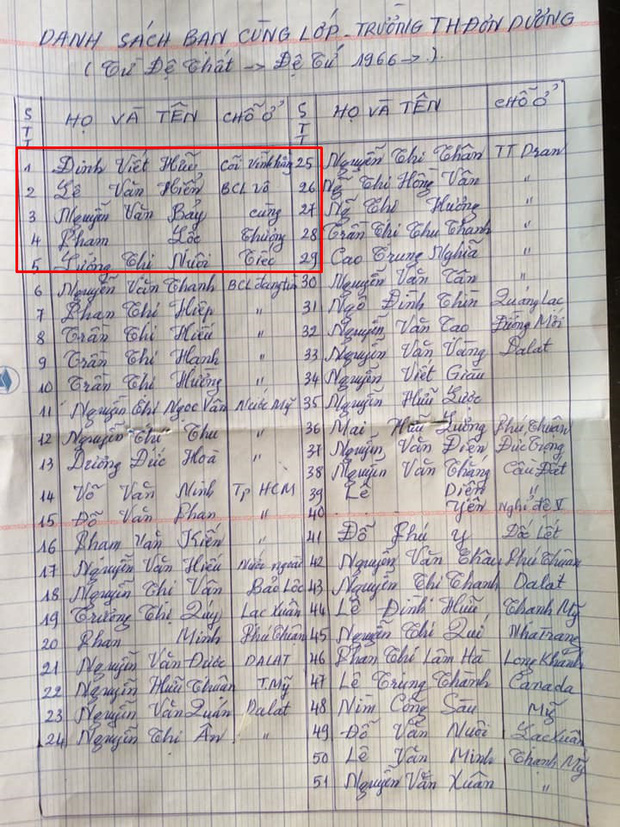 DANH SÁCH BẠN CÙNG LỚP - TRƯỜNG TH ĐƠN DƯƠNG
( Từ Đệ Thất → Đệ Tứ 1966 → ).
STT HỌ VÀ TÊN CHỖ Ở
1 Đinh Viết Hữu Cõi Vĩnh hằng
2 Lê Văn Hiển BCL Vô
3 Nguyễn Văn Bảy cùng
4 Phạm Lộc Thương
5 Lương Thị Nuôi Tiếc
6 Nguyễn Văn Thanh BCL đang tìm
7 Phan Thị Hiệp "
8 Trần Thị Hiếu "
9 Trần Thị Hạnh "
10 Trần Thị Hường "
11 Nguyễn Thị Ngọc Vân Nước Mỹ
12 Nguyễn Thị Thu "
13 Dương Đức Hoà "
14 Võ Văn Ninh Tp HCM
15 Đỗ Văn Phan "
16 Phạm Văn Kiến "
17 Nguyễn Văn Hiếu Nước ngoài
18 Nguyễn Thị Vân Bảo Lộc
19 Trương Thị Quý Lạc Xuân
20 Phan Minh Phú Thuận
21 Nguyễn Văn Được DALAT
22 Nguyễn Hữu Thuân TMỹ
23 Nguyễn Văn Quán Dalat
24 Nguyễn Thị Ân "
STT HỌ VÀ TÊN CHỖ Ở
25 Nguyễn Thị Thân TT Dran
26 Ng Thị Hồng Vân "
27 Ng Thị Hương "
28 Trần Thị Thu Thanh "
29 Cao Trung Nghĩa "
30 Nguyễn Văn Tân "
31 Ngô Đình Thìn Quảng Lạc
32 Nguyễn Văn Tao Đường Mới
33 Nguyễn Văn Vàng Dalat
34 Nguyễn Viết Giàu
35 Nguyễn Hữu Lược
36 Mai Hữu Lượng Phú Thuận
37 Nguyễn Văn Diên Đức Trọng
38 Nguyễn Văn Thăng Cầu Đất
39 Lê Diên "
40 Yên Nghĩ đệ V
41 Đỗ Phú Y Dốc Lết
42 Nguyễn Văn Châu Phú Thuận
43 Nguyễn Thị Thanh Dalat
44 Lê Đình Hữu Thạnh Mỹ
45 Nguyễn Thị Quí Nha Trang
46 Phan Thị Lâm Hà Long Khánh
47 Lê Trung Thanh Canada
48 Nim Cống Sau Mỹ
49 Đỗ Văn Nuôi Lạc Xuân
50 Lê Văn Minh Thạnh Mỹ
51 Nguyễn Văn Xuân "